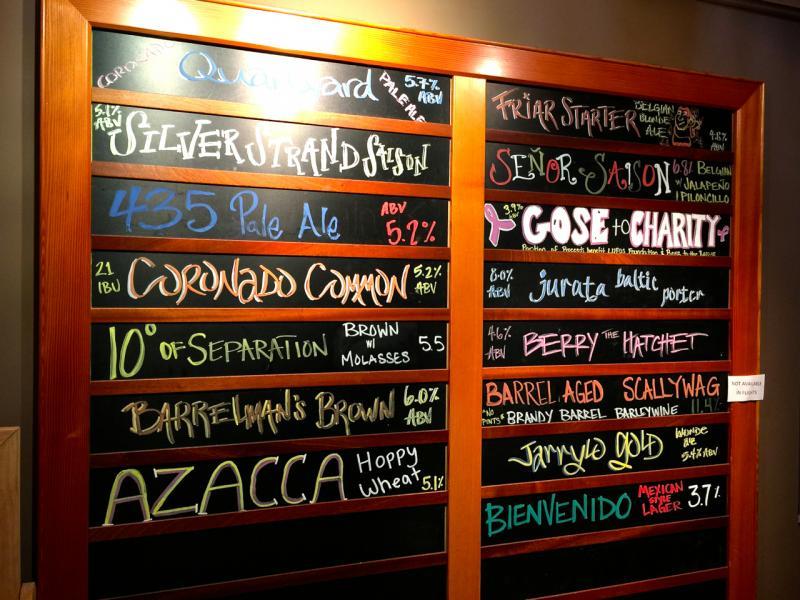 CORONADO Quarterdeck PALE ALE 5.7% ABV
5.1% ABV SILVER STRAND SAISON
435 Pale Ale ABV 5.2%
21 IBU CORONADO COMMON 5.2% ABV
10° OF SEPARATION BROWN W/ MOLASSES 5.5
BARRELMAN'S BROWN 6.0% ABV
AZACCA Hoppy Wheat 5.1%
FRIAR STARTER BELGIAN BLONDE ALE 4.8%
SEÑOR SAISON 6.8% BELGIAN W/ JALAPEÑO / PILONCILLO
3.9% ABV GOSE to CHARITY
8.0% ABV jurata baltic porter
4.6% ABV BERRY THE HATCHET
BARREL AGED SCALLYWAG
*NO PINTS* BRANDY BARREL BARLEYWINE 11.4%
NOT AVAILABLE IN FLIGHTS
Jarrylo GOLD BLONDE ALE 5.4% ABV
BIENVENIDO MEXICAN STYLE LAGER 3.7%